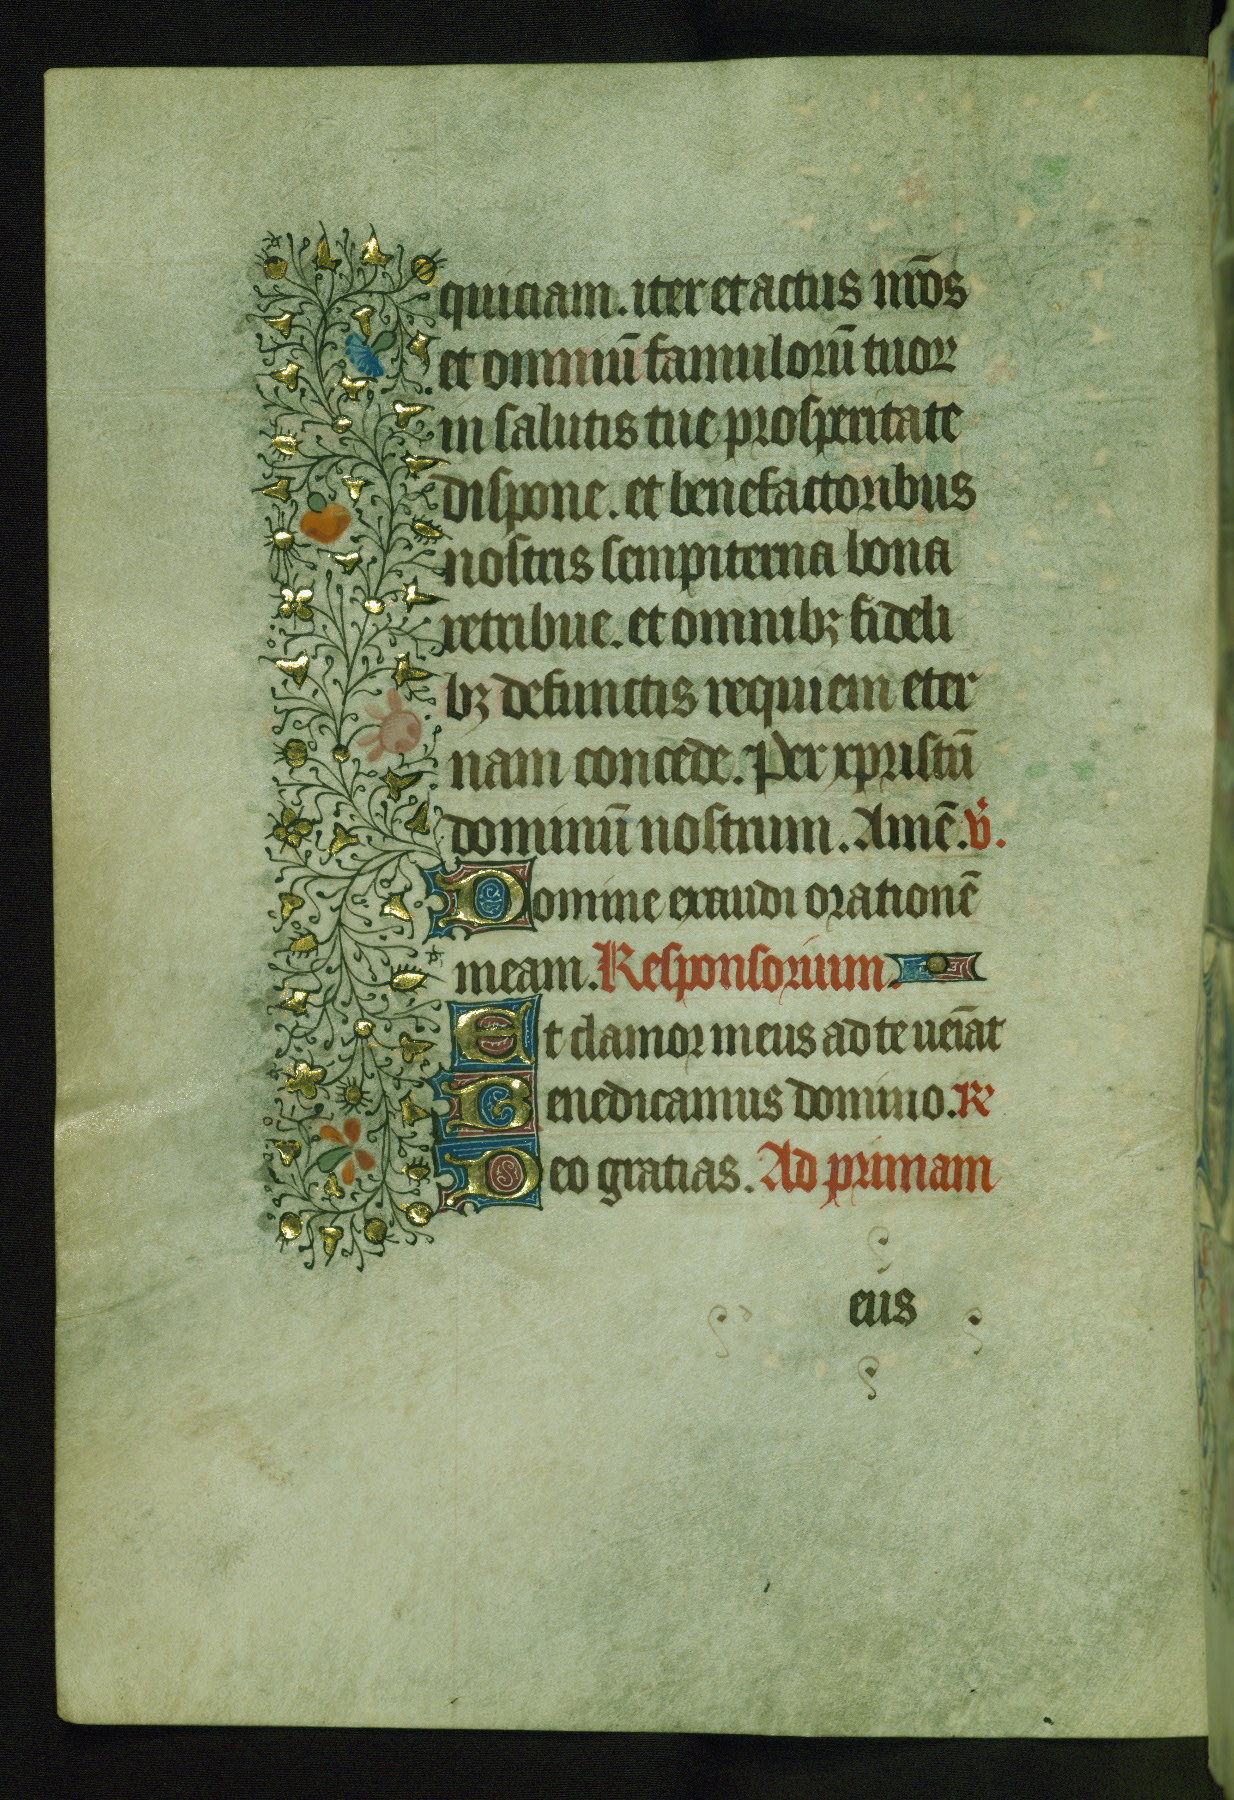 quiciam. iter et actus nr̄os
et omniū famulorū tuoꝝ
in salutis tue prosperitate
dispone. et benefactoribus
nostris sempiterna bona
retribue. et omnibꝫ fideli
bꝫ defunctis requiem eter
nam concede. Per xpristū
dominū nostrum. Amē. v̄.
Domine exaudi orationē
meam. Responsorium.
Et clamor meus ad te veīat
Benedicamus domino. R
Deo gratias. Ad primam
eus